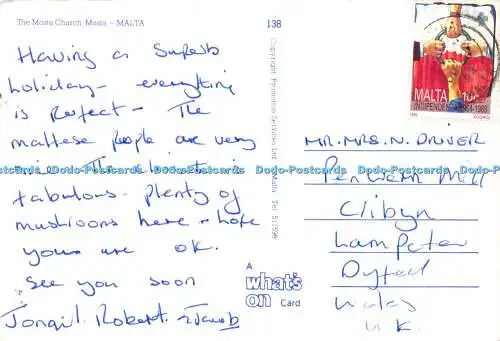 The Mosta Church, Mosta – MALTA
138
Having a superb
holiday - everything
is perfect - The
maltese people are very
fabulous - plenty of
mushrooms here - hope
yours are OK.
see you soon
Robert & Jacob
Copyright Promotion Services Ltd Malta Tel
A
what's
on Card
MALTA 10c
INDEPENDENCE 1964-1989
MR. MRS. N. DRIVER
Mill
Clibyn
Lampeter
Dyfed
Wales
U.K.
Dodo-Postcards Dodo-Postcards Dodo-Postcards Dodo-Postcards Dodo-Postcards